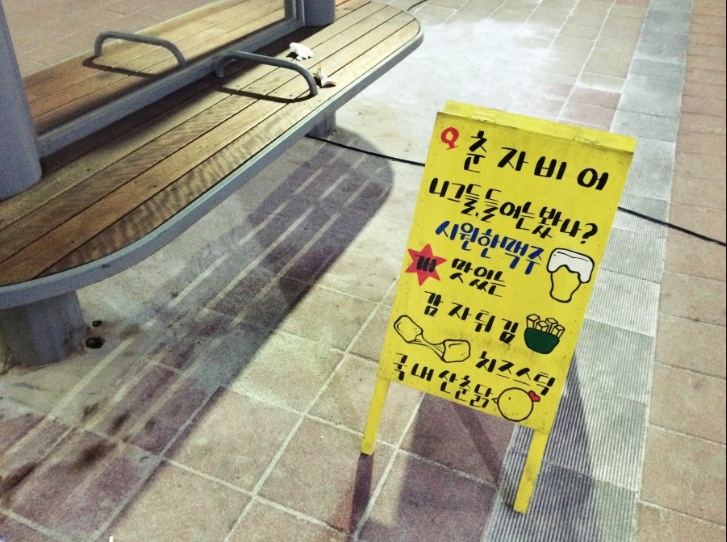 춘자비어
니그들,들어는봤나?
시원한맥주
개 맛있는
감자튀김
치즈스틱
국내산춘닭